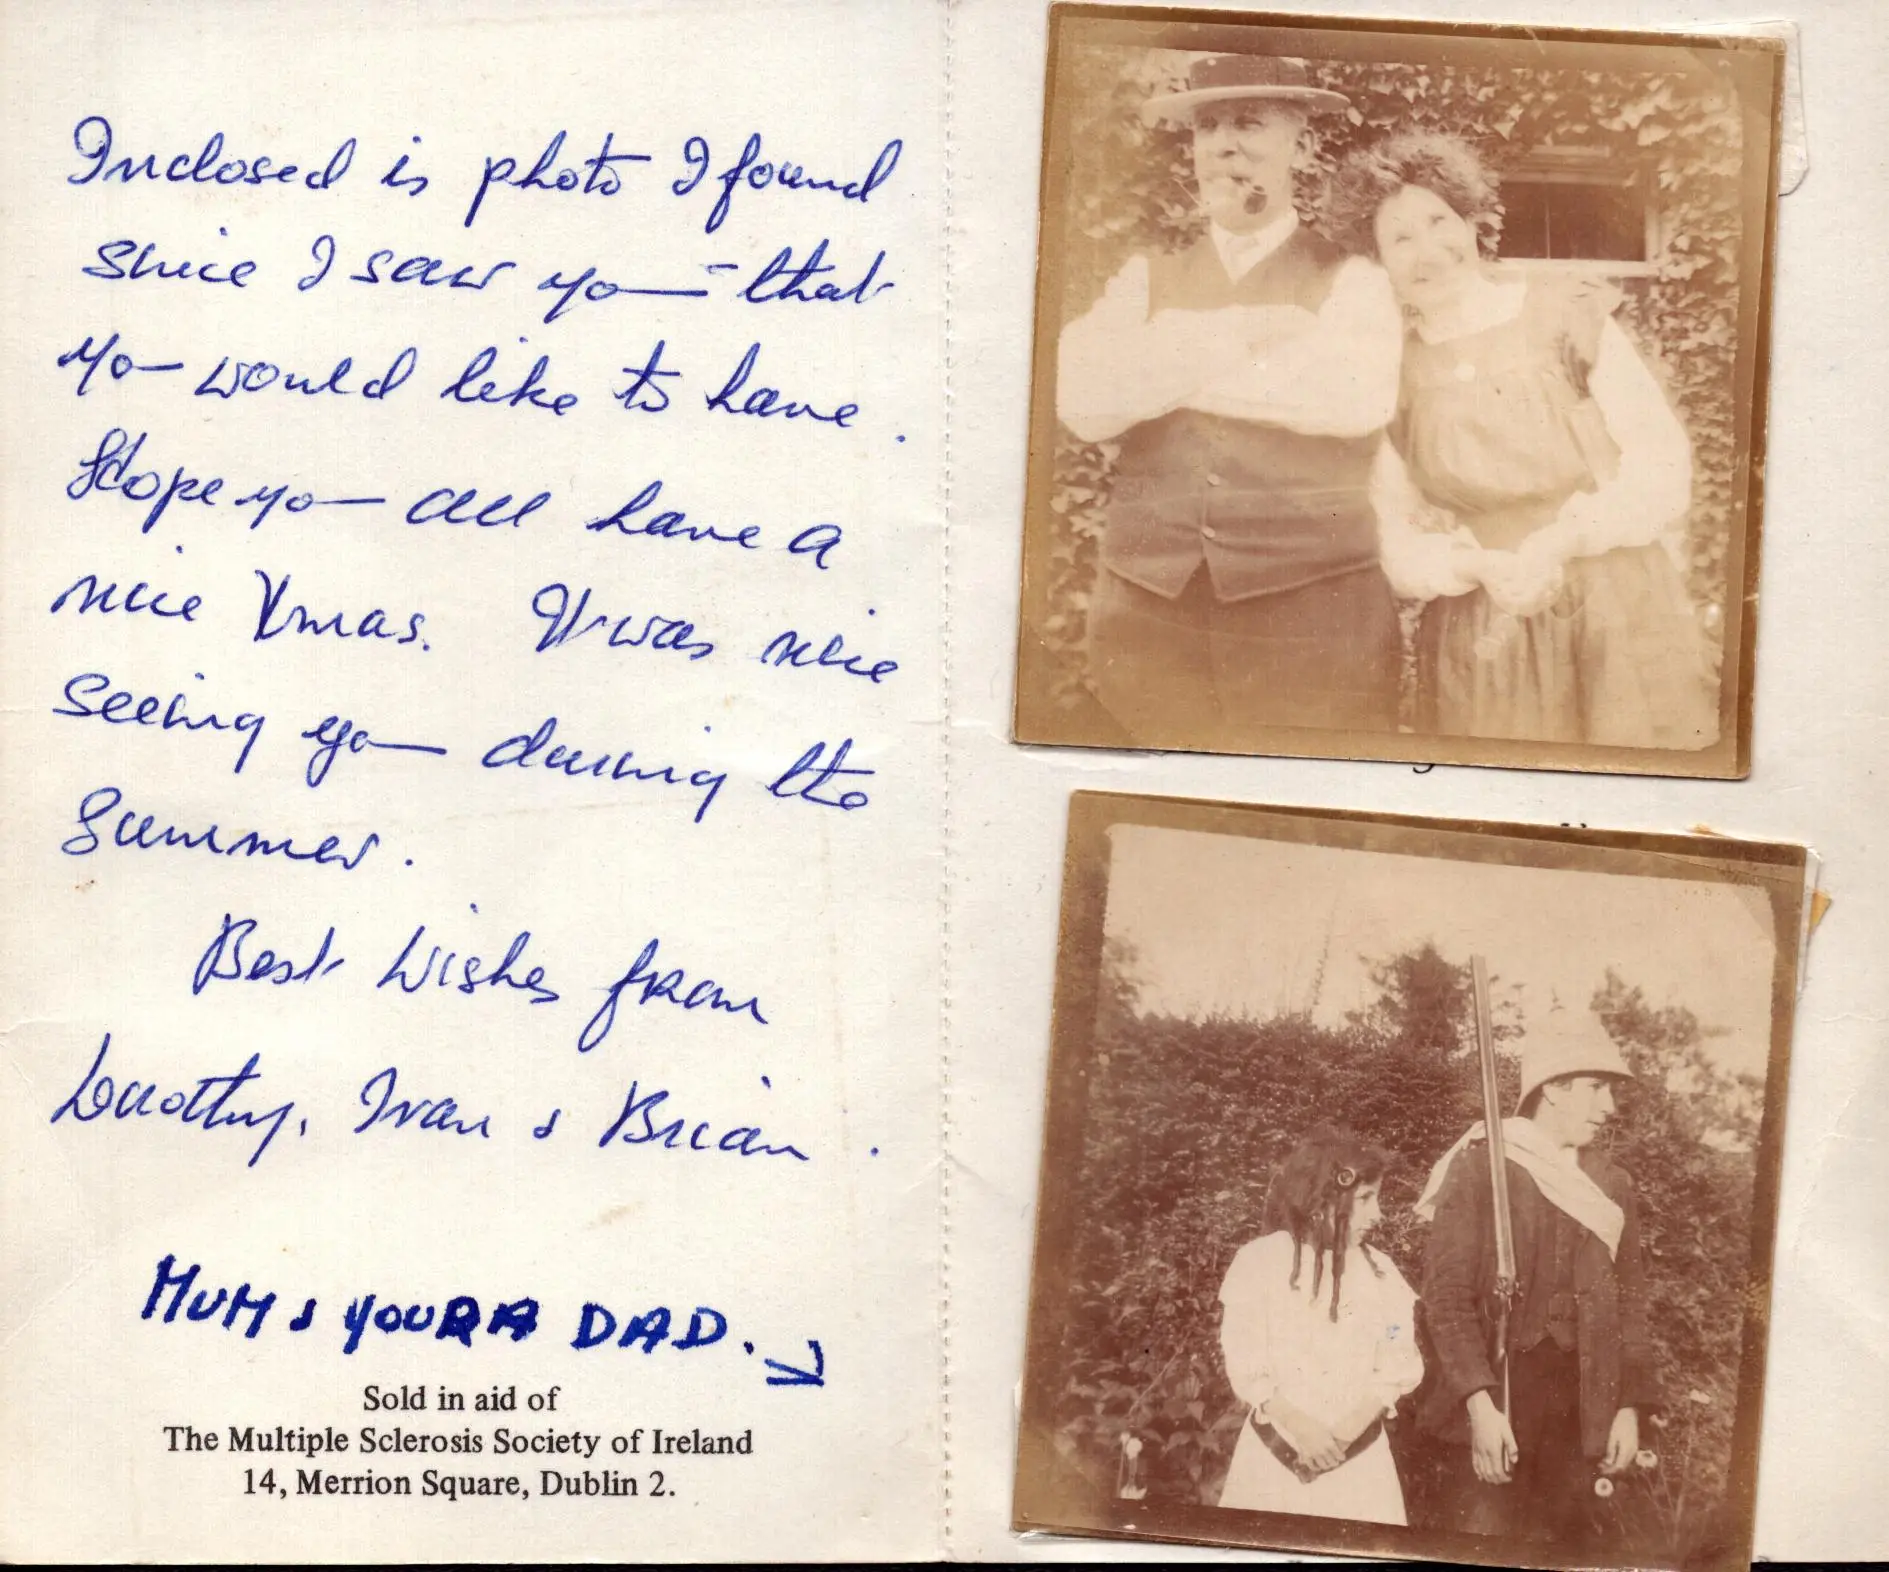 Inclosed is photo I found
since I saw you - that
you would like to have.
Hope you all have a
nice Xmas. It was nice
seeing you during the
Summer.
Best Wishes from
Dorothy, Ivan & Brian.
MUM & DAD.
Sold in aid of
The Multiple Sclerosis Society of Ireland
14, Merrion Square, Dublin 2.